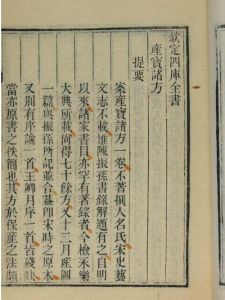 欽定四庫全書
產寶諸方
提要
案產寶諸方一卷不著撰人名氏宋史藝
文志不載惟陳振孫書錄解題有之自明
以來諸家書目亦罕有著錄者今檢永樂
大典所載尚得七十餘方又十二月產圖
一篇與振孫所記並合蓋即宋時之原本
又別有序論一首王卿月序一首皆殘缺
當亦原書之佚簡也其方於保產之法頗